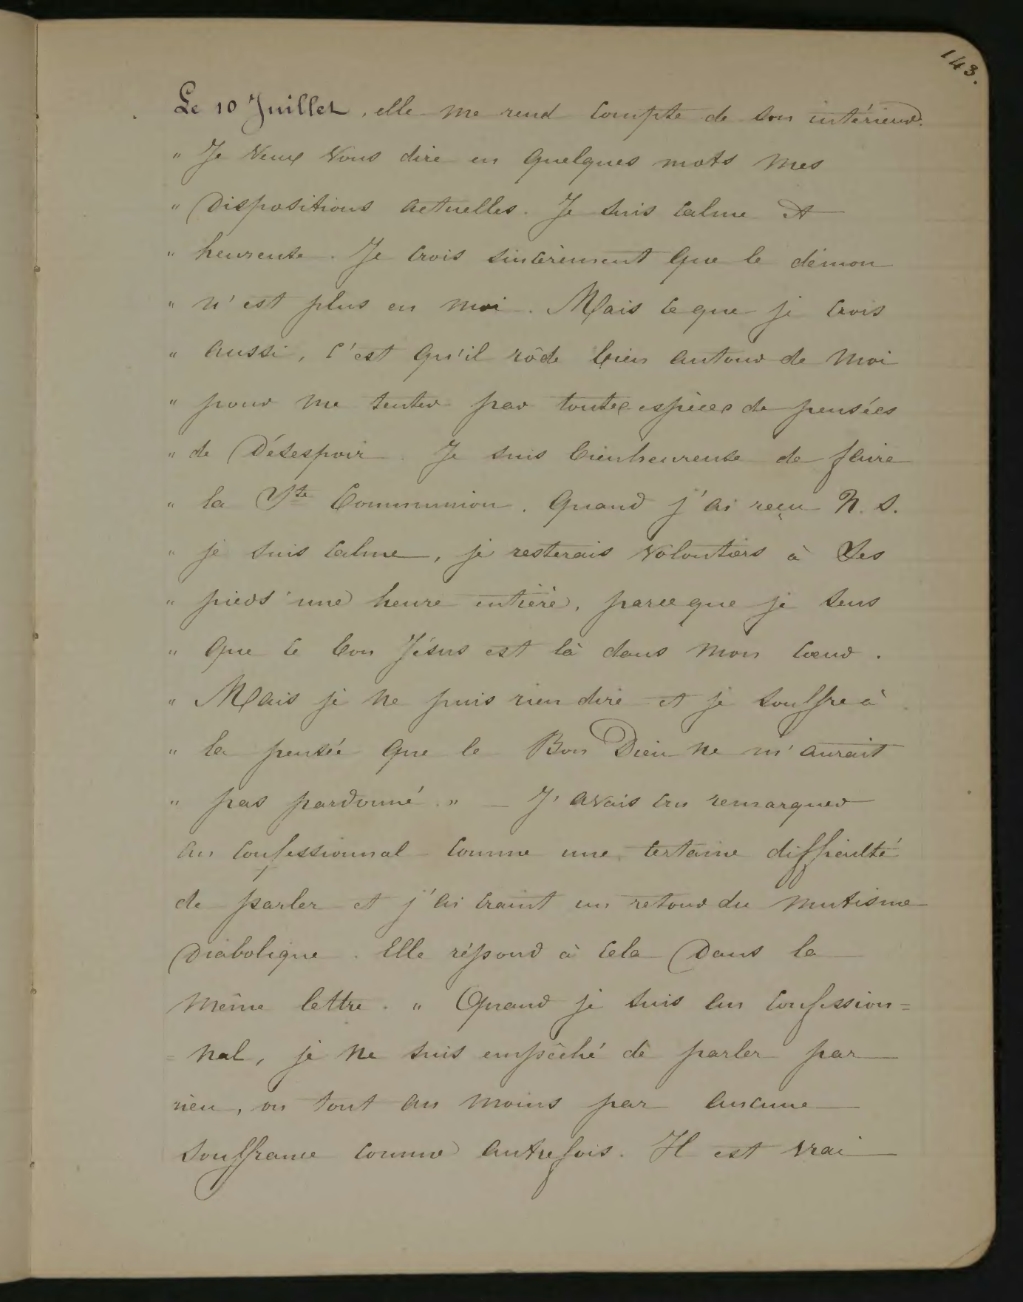 143.
Le 10 Juillet, elle me rend compte de son intérieur.
" Je veux vous dire en quelques mots mes
" Dispositions actuelles. Je suis calme et
" heureuse. Je crois sincèrement que le démon
" n'est plus en moi. Mais ce que je crois
" aussi, c'est qu'il rôde bien autour de moi
" pour me tenter par toutes espèces de pensées
" de Désespoir. Je suis bienheureuse de faire
" la Ste Communion. Quand j'ai reçu N. S.
" je suis calme, je resterais volontiers à Ses
" pieds une heure entière, parce que je sens
" que le bon Jésus est là dans mon cœur.
" Mais je ne puis rien dire et je souffre à
" la pensée que le Bon Dieu ne m'aurait
" pas pardonné. " — J'avais cru remarquer
au confessionnal comme une certaine difficulté
de parler et j'ai craint un retour du mutisme
Diabolique. Elle répond à cela Dans la
même lettre. " Quand je suis au confession=
= nal, je ne suis empêché de parler par
rien, ou tout au moins par aucune
souffrance comme autrefois. Il est vrai